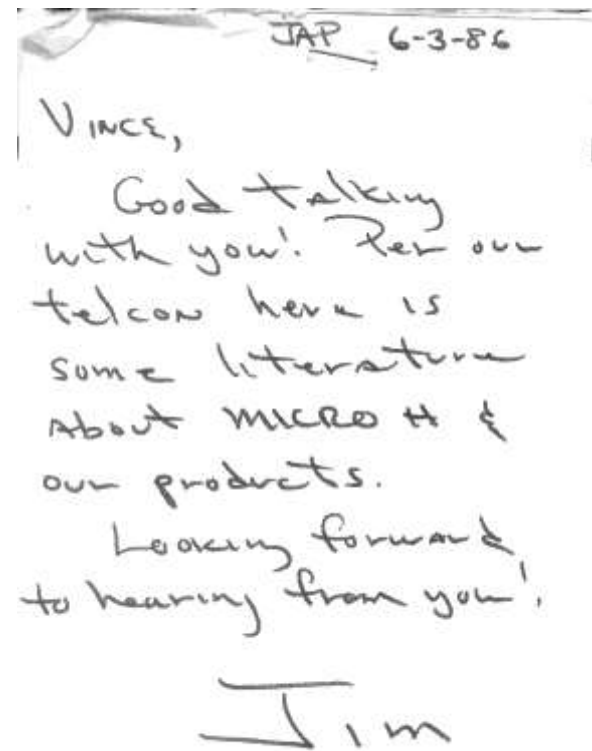 JAP 6-3-86
VINCE,
Good talking
with you! Per our
telcon here is
some literature
About MICRO H &
our products.
Looking forward
to hearing from you!
Jim